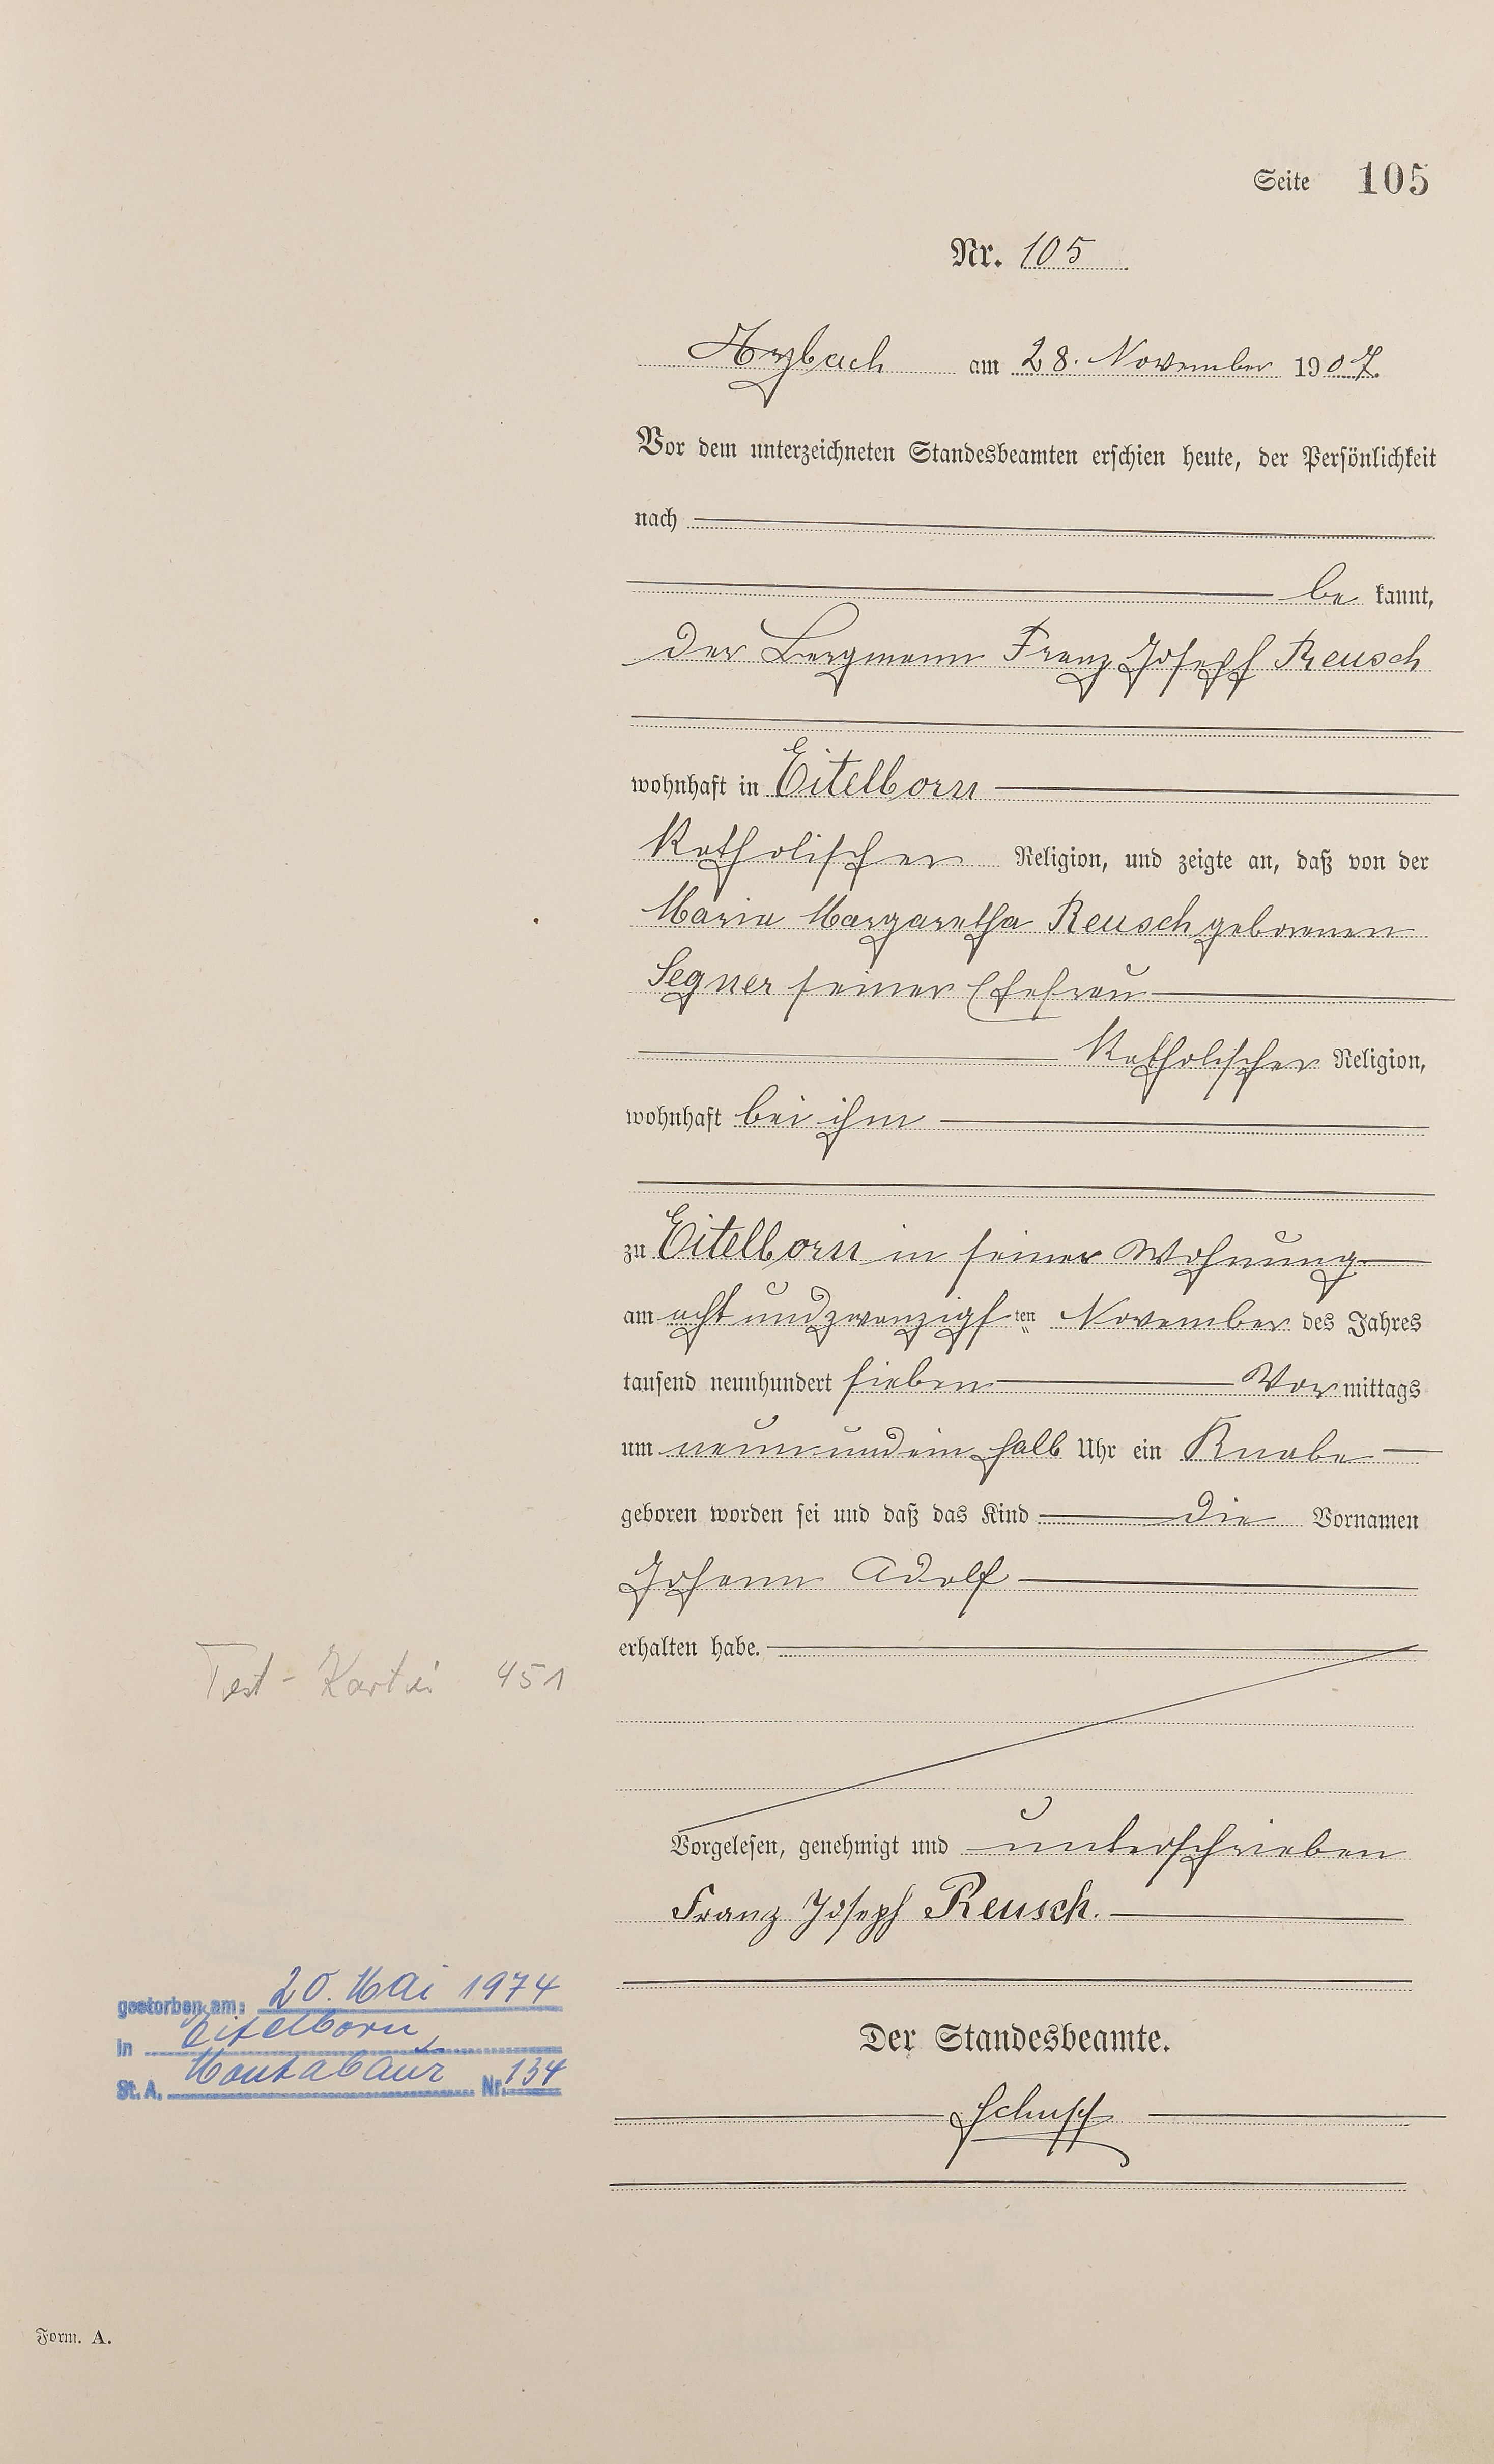 Seite 105
Nr. 105
Arzbach am 28. November 1907.
Vor dem unterzeichneten Standesbeamten erschien heute, der Persönlichkeit
nach
be kannt,
der Bergmann Franz Joseph Reusch
wohnhaft in Eitelborn
katholischer Religion, und zeigte an, daß von der
Maria Margaretha Reusch geborenen
Segner seiner Ehefrau
katholischer Religion,
wohnhaft bei ihm
zu Eitelborn in seiner Wohnung
am acht und zwanzigsten November des Jahres
tausend neunhundert sieben Vor mittags
um neun und ein halb Uhr ein Knabe
geboren worden sei und daß das Kind die Vornamen
Johann Adolf
erhalten habe.
Test-Kartei 451
Vorgelesen, genehmigt und unterschrieben
Franz Joseph Reusch.
gestorben am: 20. Mai 1974
in Eitelborn,
St. A. Montabaur Nr. 134
Der Standesbeamte.
Form. A.